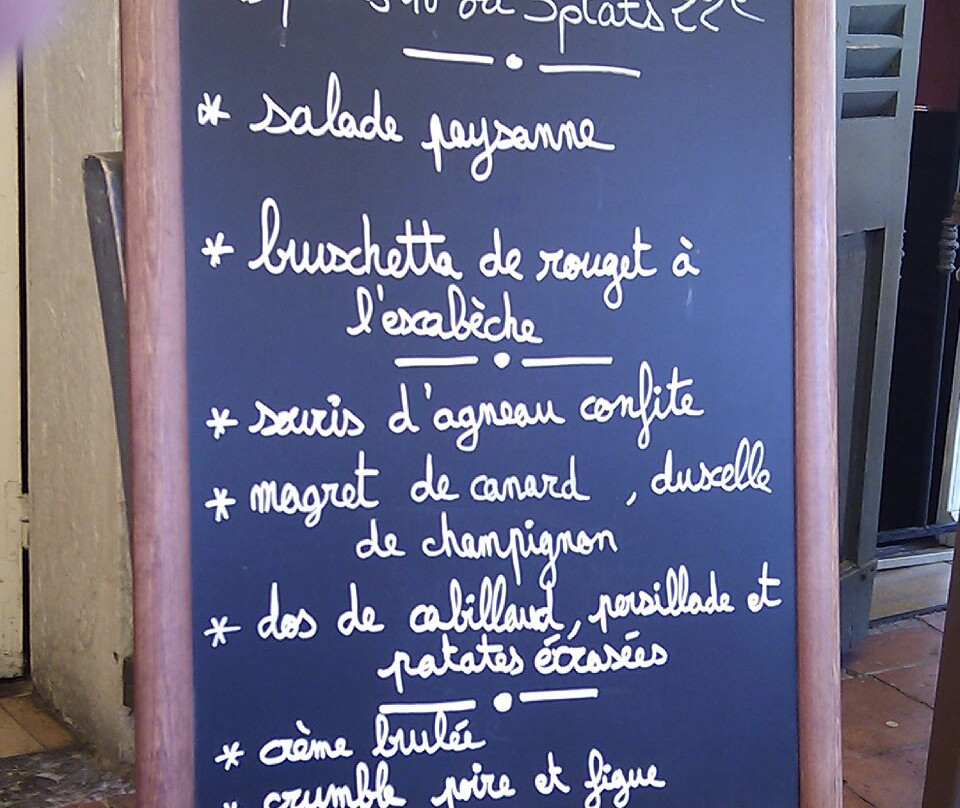 ou 3 plats 22€
* salade paysanne
* bruschetta de rouget à
l'escabèche
* souris d'agneau confite
* magret de canard , duscelle
de champignon
* dos de cabillaud, persillade et
patates écrasées
* crème brulée
* crumble poire et figue